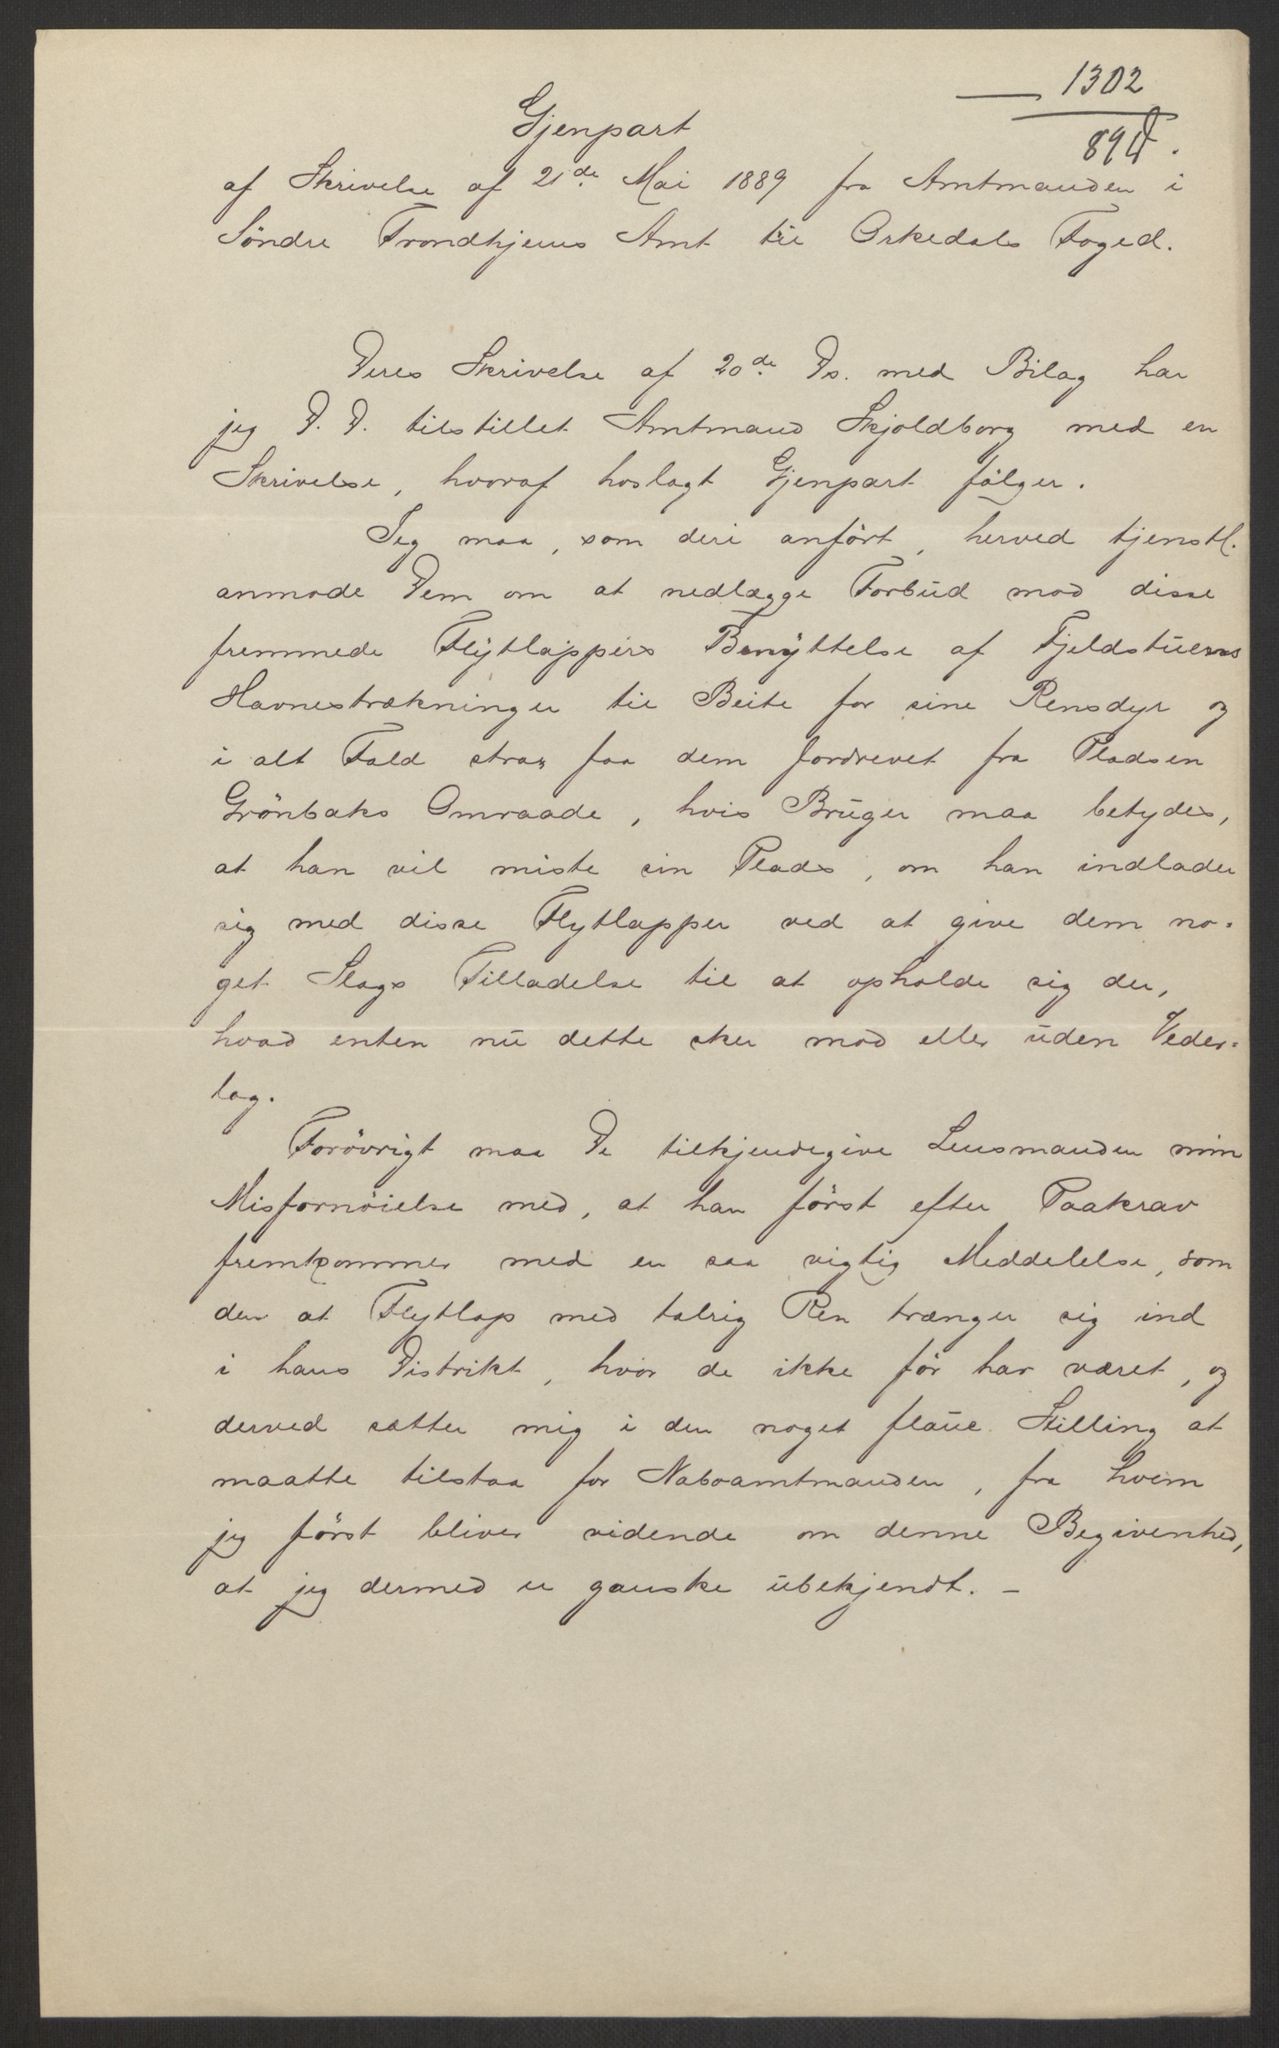 1302
89 J.
Gjenpart
af Skrivelse af 21de Mai 1889 fra Amtmanden i
Söndre Trondhjems Amt til Orkedals Foged.
Deres Skrivelse af 20de Ds. med Bilag har
jeg D. D. tilstillet Amtmand Skjoldborg med en
Skrivelse, hvoraf hoslagt Gjenpart fölger.
Jeg maa, som deri anfört, herved tjenstl.
anmode Dem om at nedlægge Forbud mod disse
fremmede Flytlappers Benyttelse af Fjeldstuernes
Havnestrækninger til Beite for sine Rensdyr og
i alt Fald strax faa dem fordrevet fra Pladsen
Grönbæks Omraade, hvis Bruger maa betydes,
at han vil miste sin Plads, om han indlader
sig med disse Flytlapper ved at give dem no-
get Slags Tilladelse til at opholde sig der,
hvad enten nu dette sker mod eller uden Veder-
lag.
Forövrigt maa De tilkjendegive Lensmanden min
Misfornöielse med, at han först efter Paakrav
fremkommer med en saa vigtig Meddelelse, som
den at Flytlap med talrig Ren trænger sig ind
i hans Distrikt, hvor de ikke för har været, og
derved sætter mig i den noget flaue Stilling at
maatte tilstaa for Naboamtmanden, fra hvem
jeg först bliver vidende om denne Begivenhed,
at jeg dermed er ganske ubekjendt. -